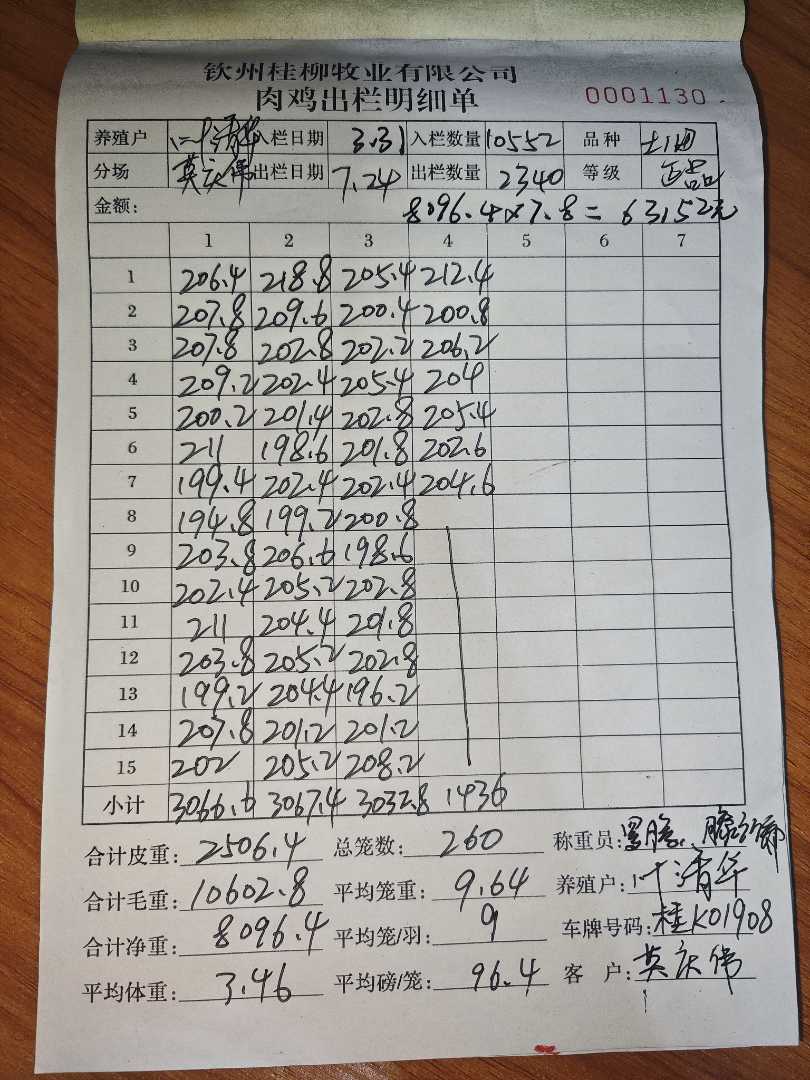 钦州桂柳牧业有限公司
肉鸡出栏明细单 0001130
养殖户 叶清华 入栏日期 3.31 入栏数量 10552 品种
分场 莫庆伟 出栏日期 7.24 出栏数量 2340 等级 正品
金额: 8096.4×7.8=63152元
1 2 3 4 5 6 7
1 206.4 218.8 205.4 212.4
2 207.8 209.6 200.4 200.8
3 207.8 202.8 202.2 206.2
4 209.2 202.4 205.4 204
5 200.2 201.4 202.8 205.4
6 211 198.6 201.8 202.6
7 199.4 202.4 202.4 204.6
8 194.8 199.2 200.8
9 203.8 206.6 198.6
10 202.4 205.2 202.8
11 211 204.4 201.8
12 203.8 205.2 202.8
13 199.2 204.4 196.2
14 207.8 201.2 201.2
15 202 205.2 208.2
小计 3066.6 3067.4 3032.8 1436
合计皮重: 2506.4 总笼数: 260 称重员:
合计毛重: 10602.8 平均笼重: 9.64 养殖户: 叶清华
合计净重: 8096.4 平均笼/羽: 9 车牌号码: 桂K01908
平均体重: 3.46 平均磅/笼: 96.4 客 户: 莫庆伟